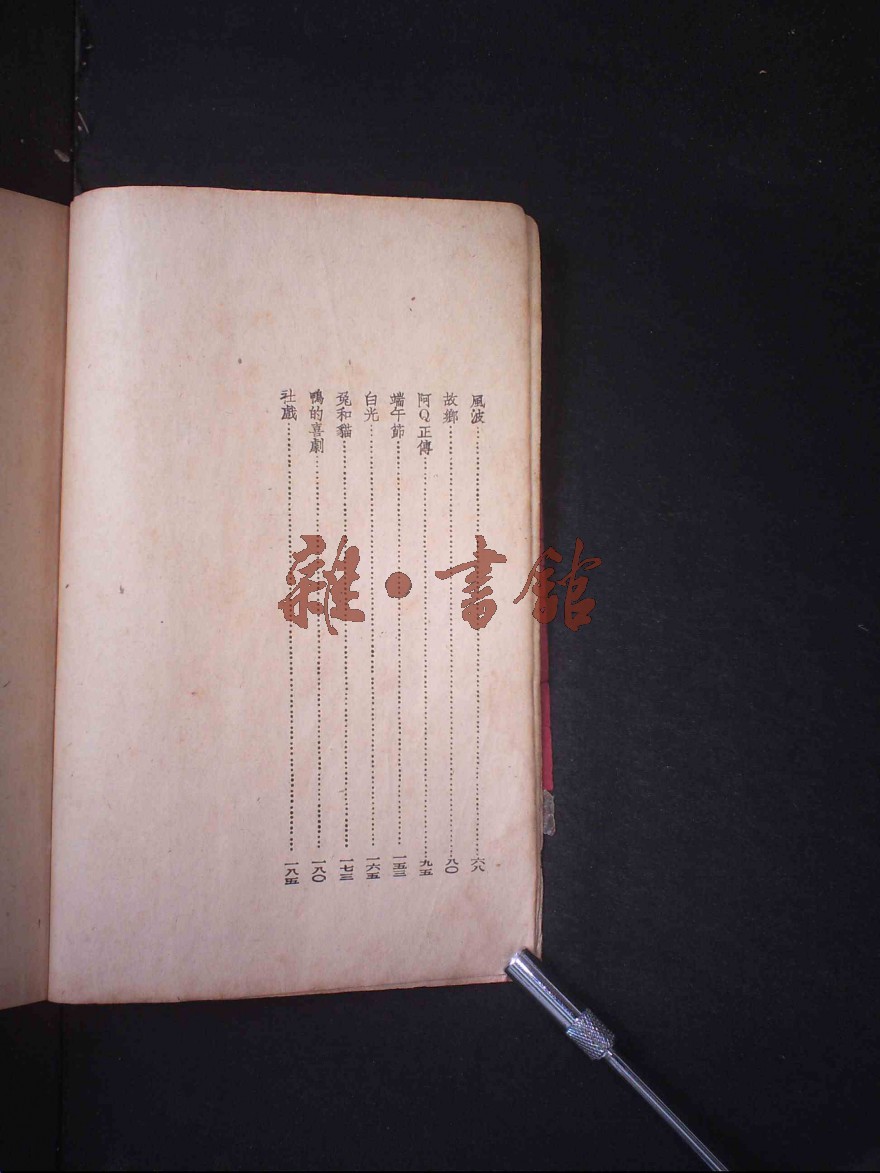 風波……六八
故鄉……八〇
阿Q正傳……九五
端午節……一五三
白光……一六五
兎和貓……一七三
鴨的喜劇……一八〇
社戲……一八五
雜·書館